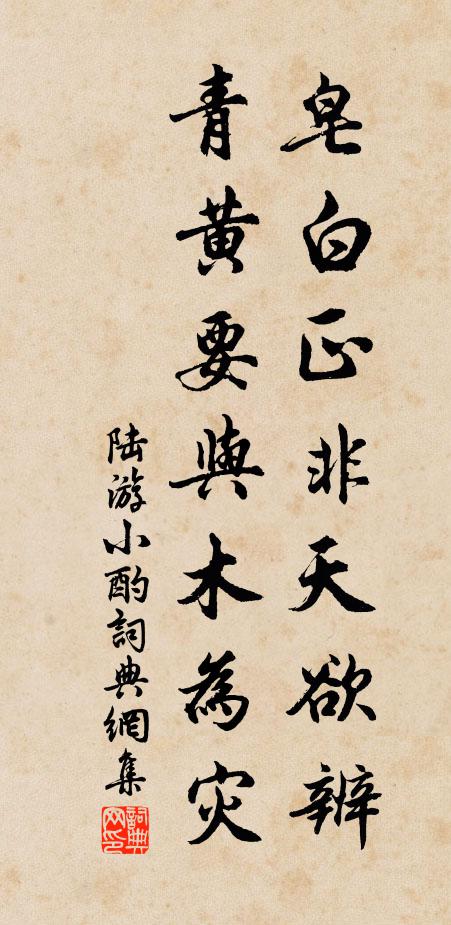 皂白正非天欲辨
青黄要與木為灾
陆游小酌詞典網集
詞典网印